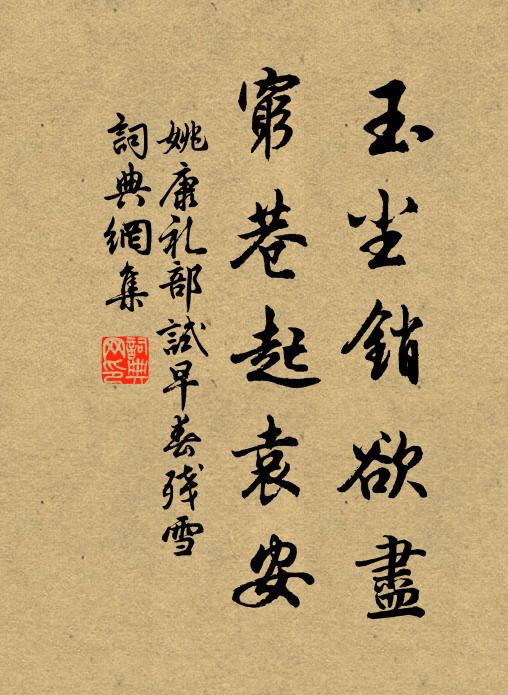 玉尘銷欲盡
窮巷起袁安
姚康礼部試早春残雪
詞典網集
詞典
网印